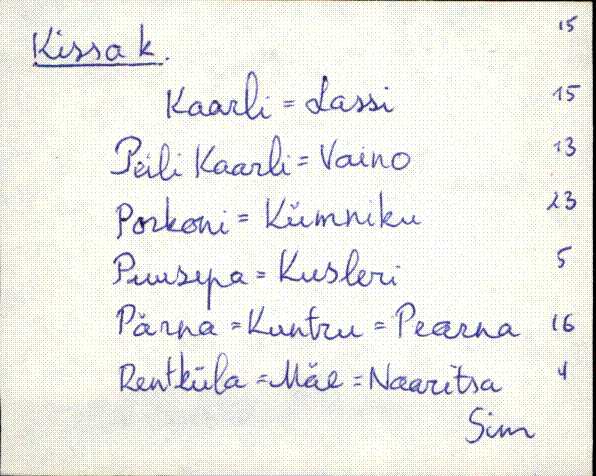 15
Kissa k.
Kaarli = Lassi 15
Peili Kaarli = Vaino 13
Porkoni = Kümniku 23
Puusepa = Kusleri 5
Pärna = Kuntru = Pearna 16
Rentküla = Mäe = Naaritsa 4
Sim